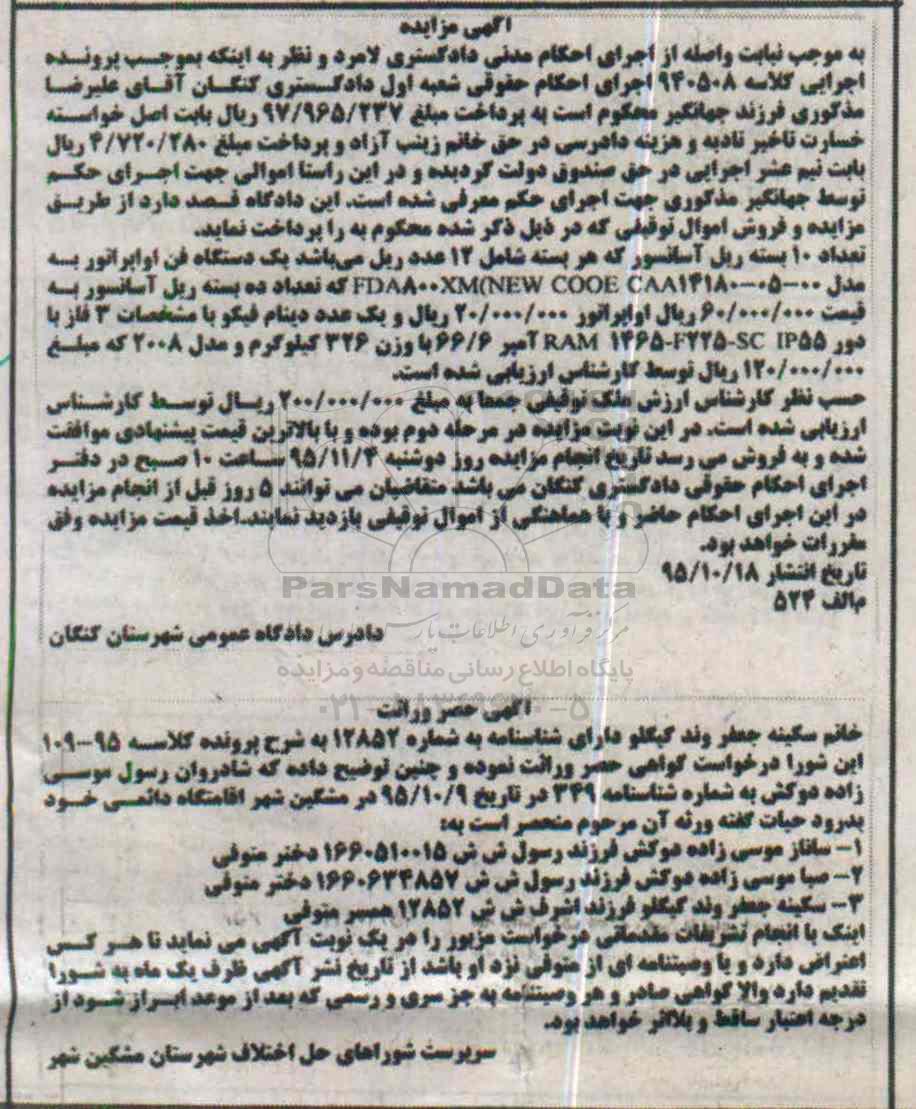 آگهی مزایده
به موجب نیابت واصله از اجرای احکام مدنی دادگستری لامرد و نظر به اینکه بموجب پرونده
اجرایی کلاسه ۹۴۰۵۰۸ اجرای احکام حقوقی شعبه اول دادگستری کنگان آقای علیرضا
مذکوری فرزند جهانگیر محکوم است به پرداخت مبلغ ۹۷/۹۶۵/۲۳۷ ریال بابت اصل خواسته
خسارت تاخیر تادیه و هزینه دادرسی در حق خانم زینب آزاد و پرداخت مبلغ ۴/۷۲۰/۲۸۰ ریال
بابت نیم عشر اجرایی در حق صندوق دولت گردیده و در این راستا اموالی جهت اجرای حکم
توسط جهانگیر مذکوری جهت اجرای حکم معرفی شده است. این دادگاه قصد دارد از طریق
مزایده و فروش اموال توقیفی که در ذیل ذکر شده محکوم به را پرداخت نماید.
تعداد ۱۰ بسته ریل آسانسور که هر بسته شامل ۱۲ عدد ریل می‌باشد یک دستگاه فن اواپراتور به
مدل FDA۸۰۰XM(NEW COOE CAA۱۴۱۸۰-۰۵-۰۰ که تعداد ده بسته ریل آسانسور به
قیمت ۶۰/۰۰۰/۰۰۰ ریال اواپراتور ۲۰/۰۰۰/۰۰۰ ریال و یک عدد دینام فیکو با مشخصات ۳ فاز با
دور RAM ۱۴۶۵-F۲۲۵-SC IP۵۵ آمپر ۶۶/۶ با وزن ۳۲۶ کیلوگرم و مدل ۲۰۰۸ که مبلغ
۱۲۰/۰۰۰/۰۰۰ ریال توسط کارشناس ارزیابی شده است.
حسب نظر کارشناس ارزش ملک توقیفی جمعا به مبلغ ۲۰۰/۰۰۰/۰۰۰ ریال توسط کارشناس
ارزیابی شده است. در این نوبت مزایده در مرحله دوم بوده و با بالاترین قیمت پیشنهادی موافقت
شده و به فروش می رسد تاریخ انجام مزایده روز دوشنبه ۹۵/۱۱/۴ ساعت ۱۰ صبح در دفتر
اجرای احکام حقوقی دادگستری کنگان می باشد متقاضیان می توانند ۵ روز قبل از انجام مزایده
در این اجرای احکام حاضر و با هماهنگی از اموال توقیفی بازدید نمایند.اخذ قیمت مزایده وفق
مقررات خواهد بود.
تاریخ انتشار ۹۵/۱۰/۱۸
م‌الف ۵۲۴
ParsNamadData
دادرس دادگاه عمومی شهرستان کنگان
مرکز فرآوری اطلاعات پارس
پایگاه اطلاع رسانی مناقصه و مزایده
آگهی حصر وراثت
خانم سکینه جعفر وند گیگلو دارای شناسنامه به شماره ۱۲۸۵۲ به شرح پرونده کلاسه ۹۵-۱۰۹
این شورا درخواست گواهی حصر وراثت نموده و چنین توضیح داده که شادروان رسول موسی
زاده دوکش به شماره شناسنامه ۳۴۹ در تاریخ ۹۵/۱۰/۹ در مشگین شهر اقامتگاه دائمی خود
بدرود حیات گفته ورثه آن مرحوم منحصر است به:
۱- ساناز موسی زاده دوکش فرزند رسول ش ش ۱۶۶۰۵۱۰۰۱۵ دختر متوفی
۲- صبا موسی زاده دوکش فرزند رسول ش ش ۱۶۶۰۶۳۴۸۵۷ دختر متوفی
۳- سکینه جعفر وند گیگلو فرزند اشرف ش ش ۱۲۸۵۲ همسر متوفی
اینک با انجام تشریفات مقدماتی درخواست مزبور را در یک نوبت آگهی می نماید تا هر کس
اعتراض دارد و یا وصیتنامه ای از متوفی نزد او باشد از تاریخ نشر آگهی ظرف یک ماه به شورا
تقدیم دارد والا گواهی صادر و هر وصیتنامه به جز سری و رسمی که بعد از موعد ابراز شود از
درجه اعتبار ساقط و بلااثر خواهد بود.
سرپرست شوراهای حل اختلاف شهرستان مشگین شهر